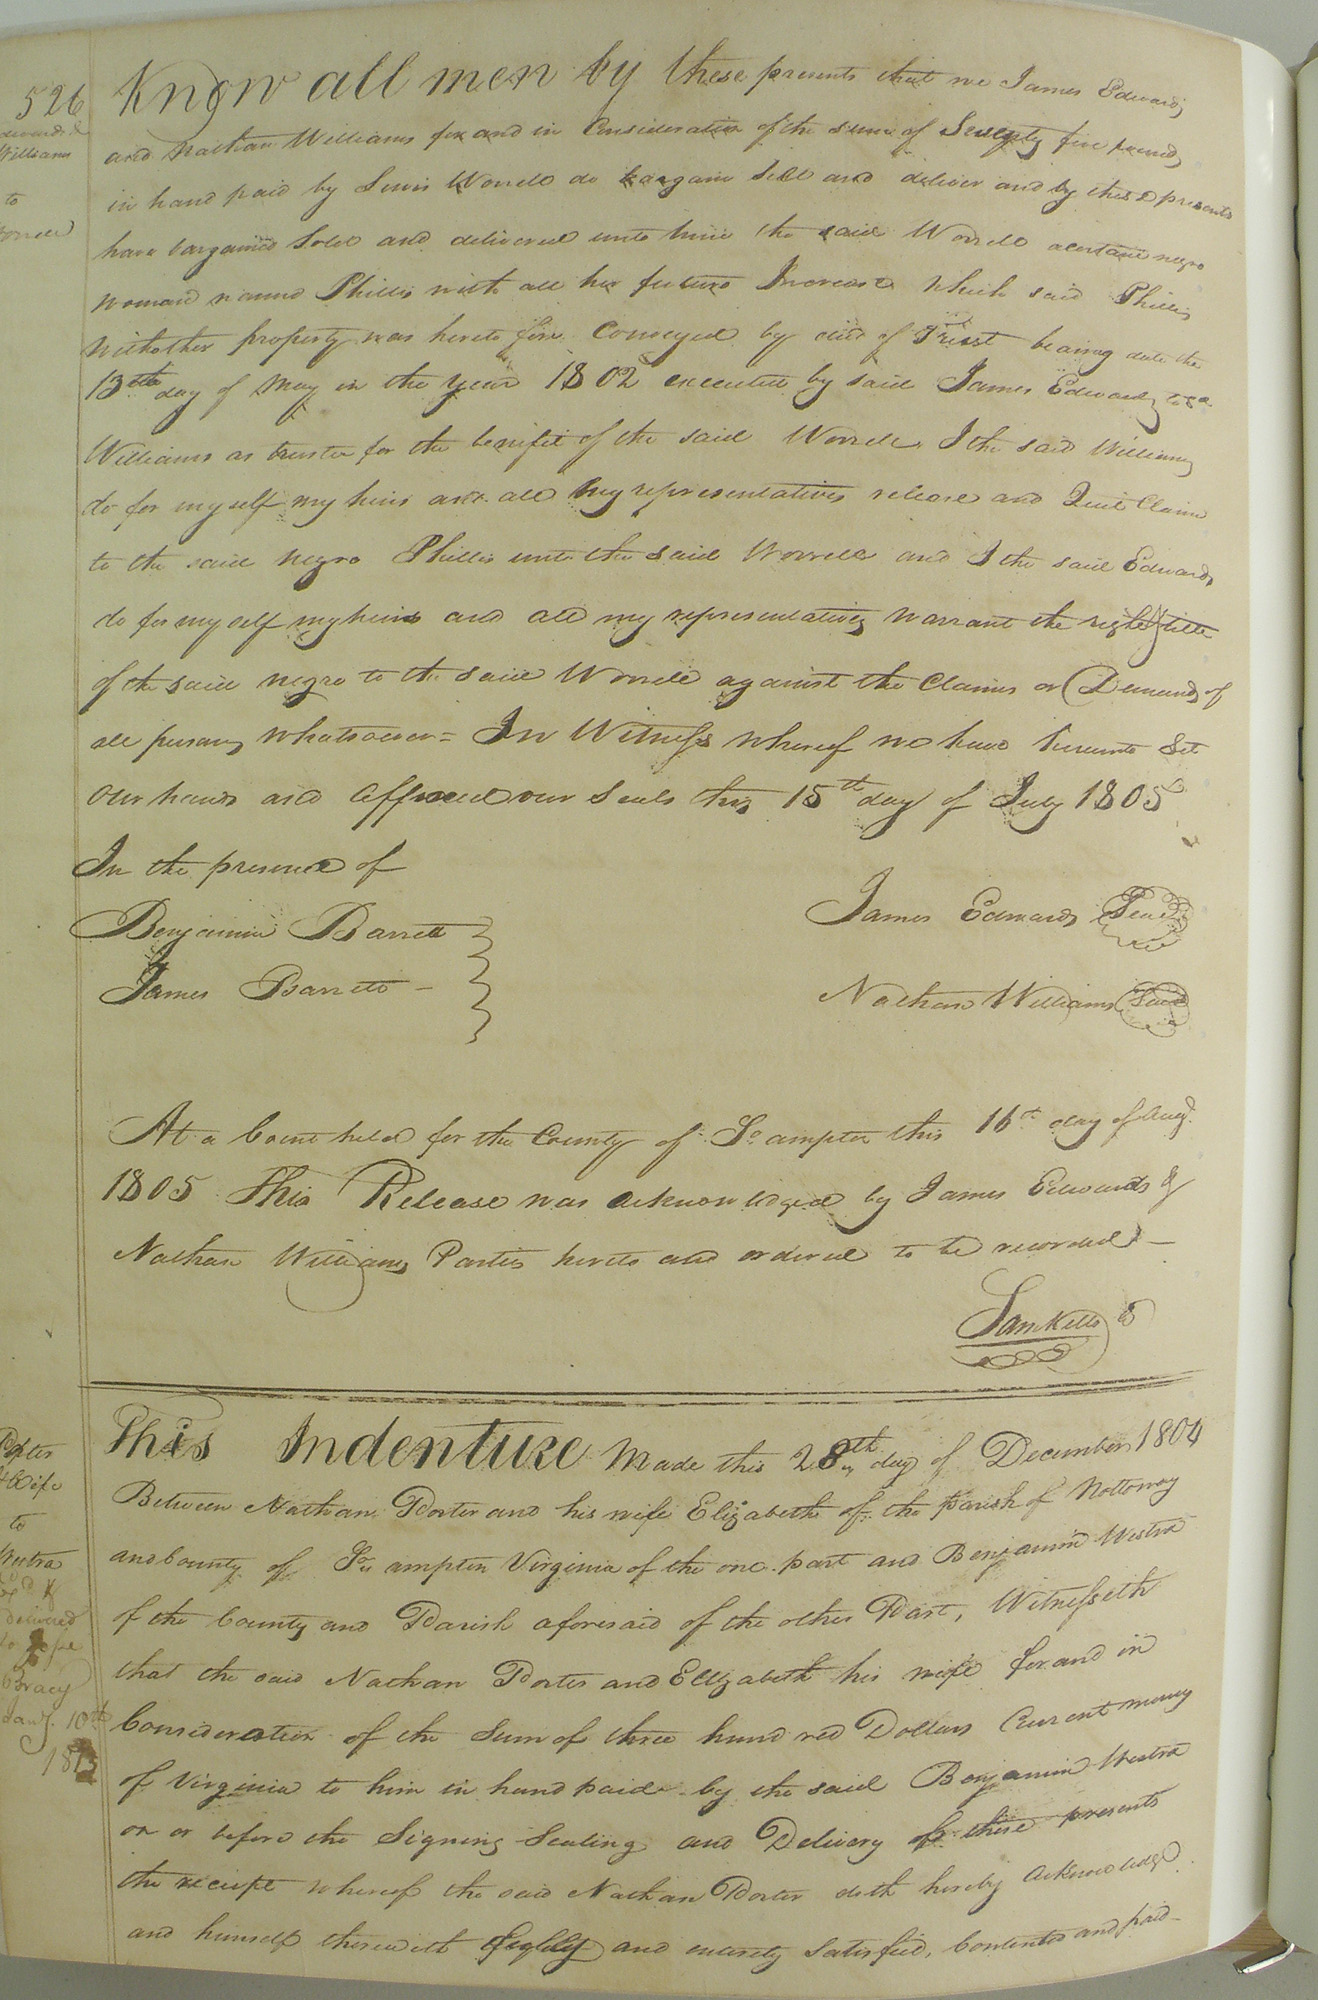 526
Edwards &
Williams
to
Worrell
Know all men by these presents that we James Edwards
and Nathan Williams for and in Consideration of the sum of Seventy five pounds
in hand paid by Lewis Worrell do bargain Sell and deliver and by these presents
have bargained Sold and delivered unto him the said Worrell a certain negro
woman named Phillis with all her future Increase which said Phillis
with other property was hereto fore Conveyed by deed of Trust bearing date the
13th day of May in the year 1802 executed by said James Edwards to sd
Williams as trustee for the benifit of the said Worrell, I the said Williams
do for myself my heirs and all my representatives release and Quit Claim
to the said negro Phillis unto the said Worrell and I the said Edwards
do for my self my heirs and all my representatives warrant the right & title
of the said negro to the said Worrell against the Claims or Demands of
all persons whatsoever = In Witness whereof we have hereunto Set
our hands and affixed our Seals this 15th day of July 1805
In the presence of
Benjamin Barrett
James Barrett
James Edwards Seal
Nathan Williams Seal
At a Court held for the County of So.ampton this 16th day of Augt.
1805 This Release was acknowledged by James Edwards &
Nathan Williams Parties hereto and ordered to be recorded
Sam Kello
Porter
& Wife
to
Westra
delivered
to
Bracy
Jany. 10th
1813
This Indenture Made this 28th day of December 1804
Between Nathan Porter and his wife Elizabeth of the Parish of Nottoway
and County of So.ampton Virginia of the one part and Benjamin Westra
of the County and Parish aforesaid of the other Part, Witnesseth
that the said Nathan Porter and Elizabeth his wife for and in
Consideration of the Sum of three hundred Dollars Current money
of Virginia to him in hand paid by the said Benjamin Westra
on or before the Signing Sealing and Delivery of these presents
the receipt whereof the said Nathan Porter doth hereby acknowledge
and himself therewith fully and entirely Satisfied, Contented and paid